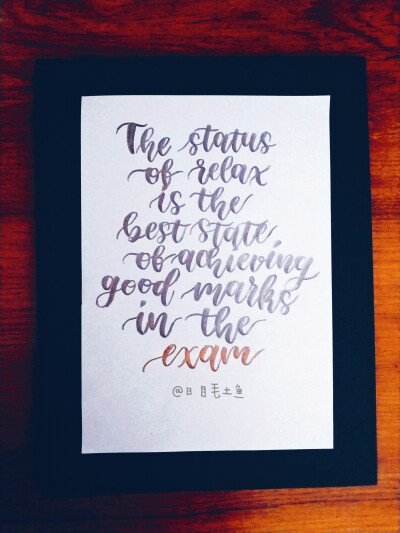 The status
of relax
is the
best state
of achieving
good marks
in the
exam
@日目毛土鱼